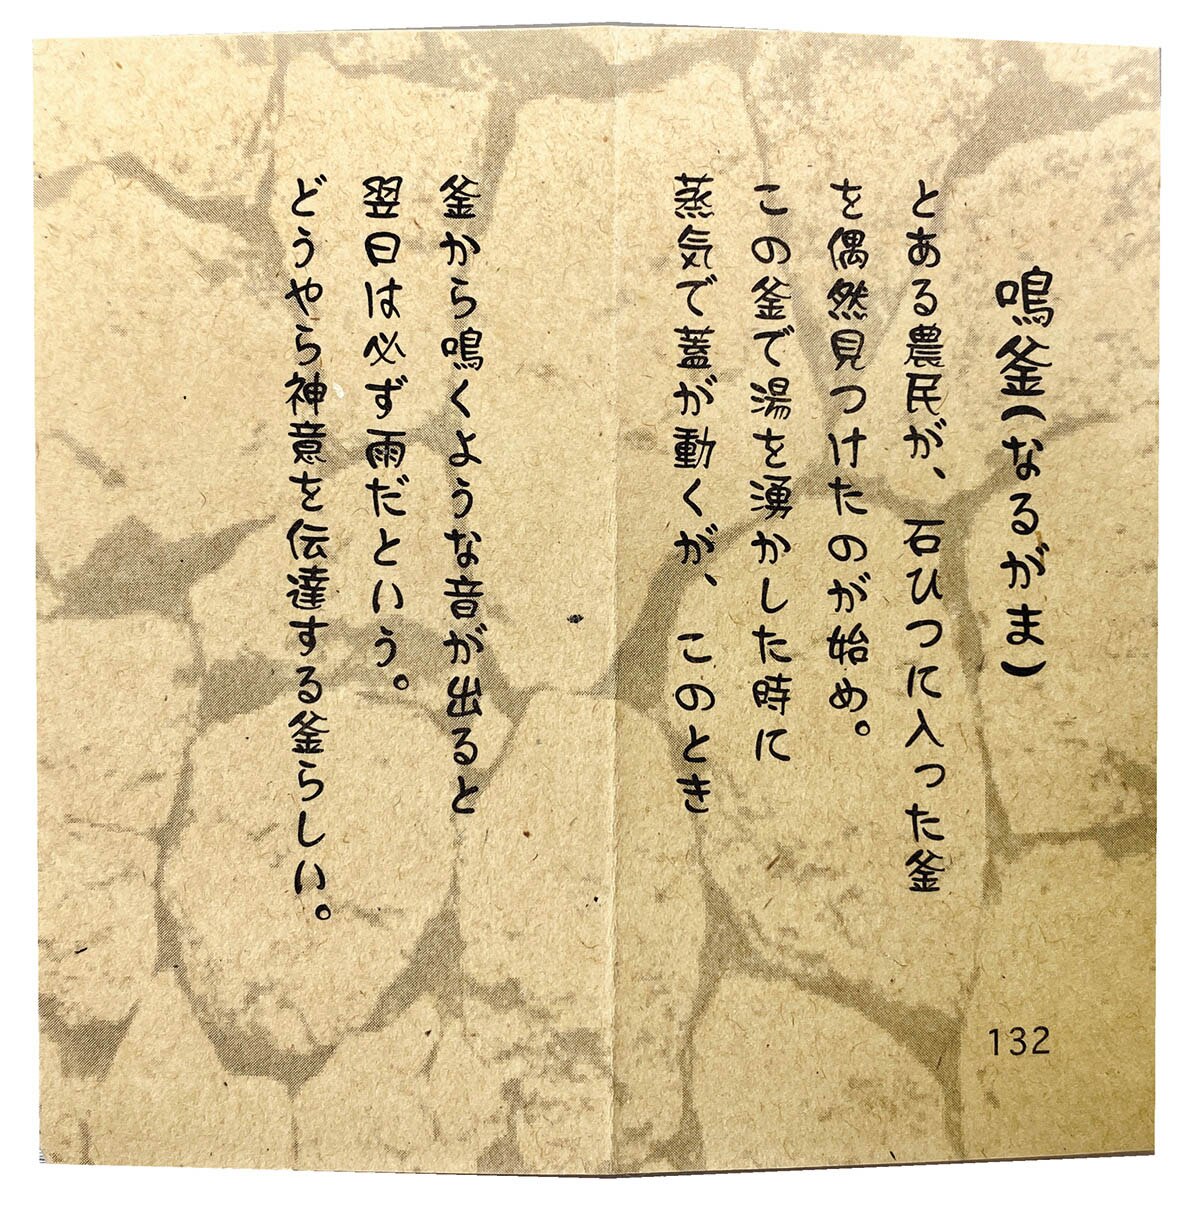 鳴釜(なるがま)
とある農民が、石ひつに入った釜
を偶然見つけたのが始め。
この釜で湯を湧かした時に
蒸気で蓋が動くが、このとき
釜から鳴くような音が出ると
翌日は必ず雨だという。
どうやら神意を伝達する釜らしい。
132